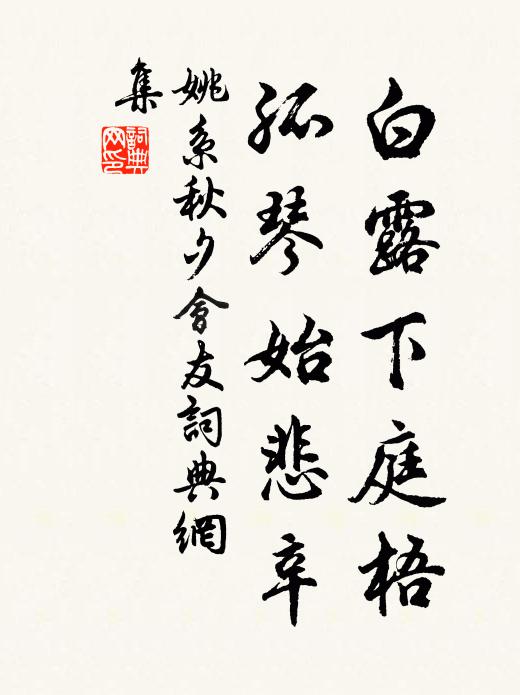 白露下庭梧
孤琴始悲辛
姚系秋夕會友詞典網
集
詞典
网印